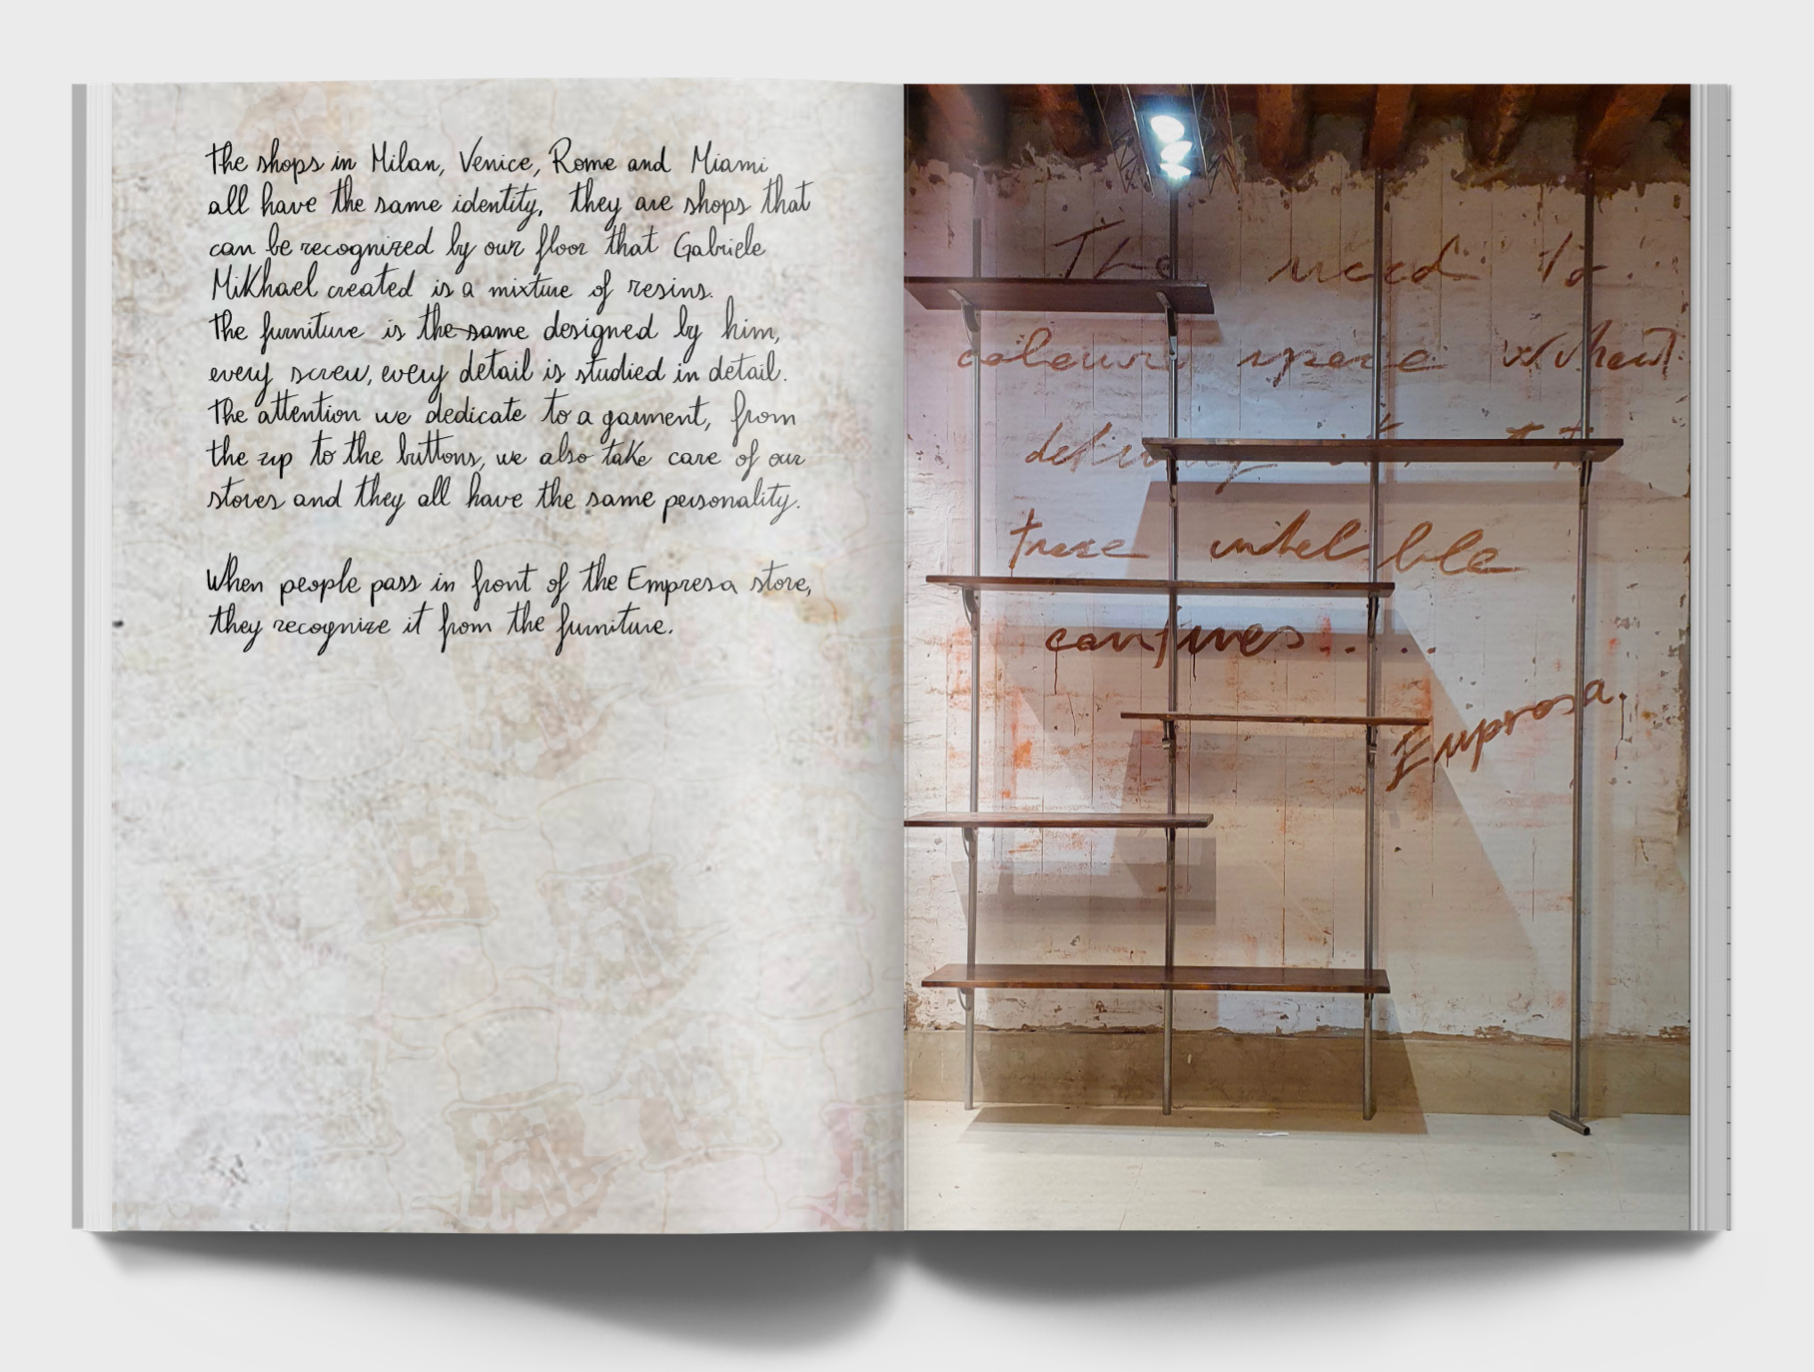 The shops in Milan, Venice, Rome and Miami
all have the same identity, they are shops that
can be recognized by our floor that Gabriele
MiKhael created is a mixture of resins.
The furniture is the same designed by him,
every screw, every detail is studied in detail.
The attention we dedicate to a garment, from
the zip to the buttons, we also take care of our
stores and they all have the same personality.
When people pass in front of the Empresa store,
they recognize it from the furniture.
The need to
colour space
indelible
confines.....
Empresa.